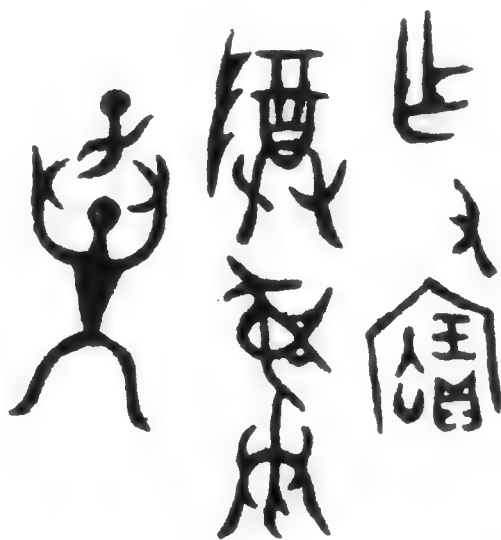 乍氒寶
尊彝